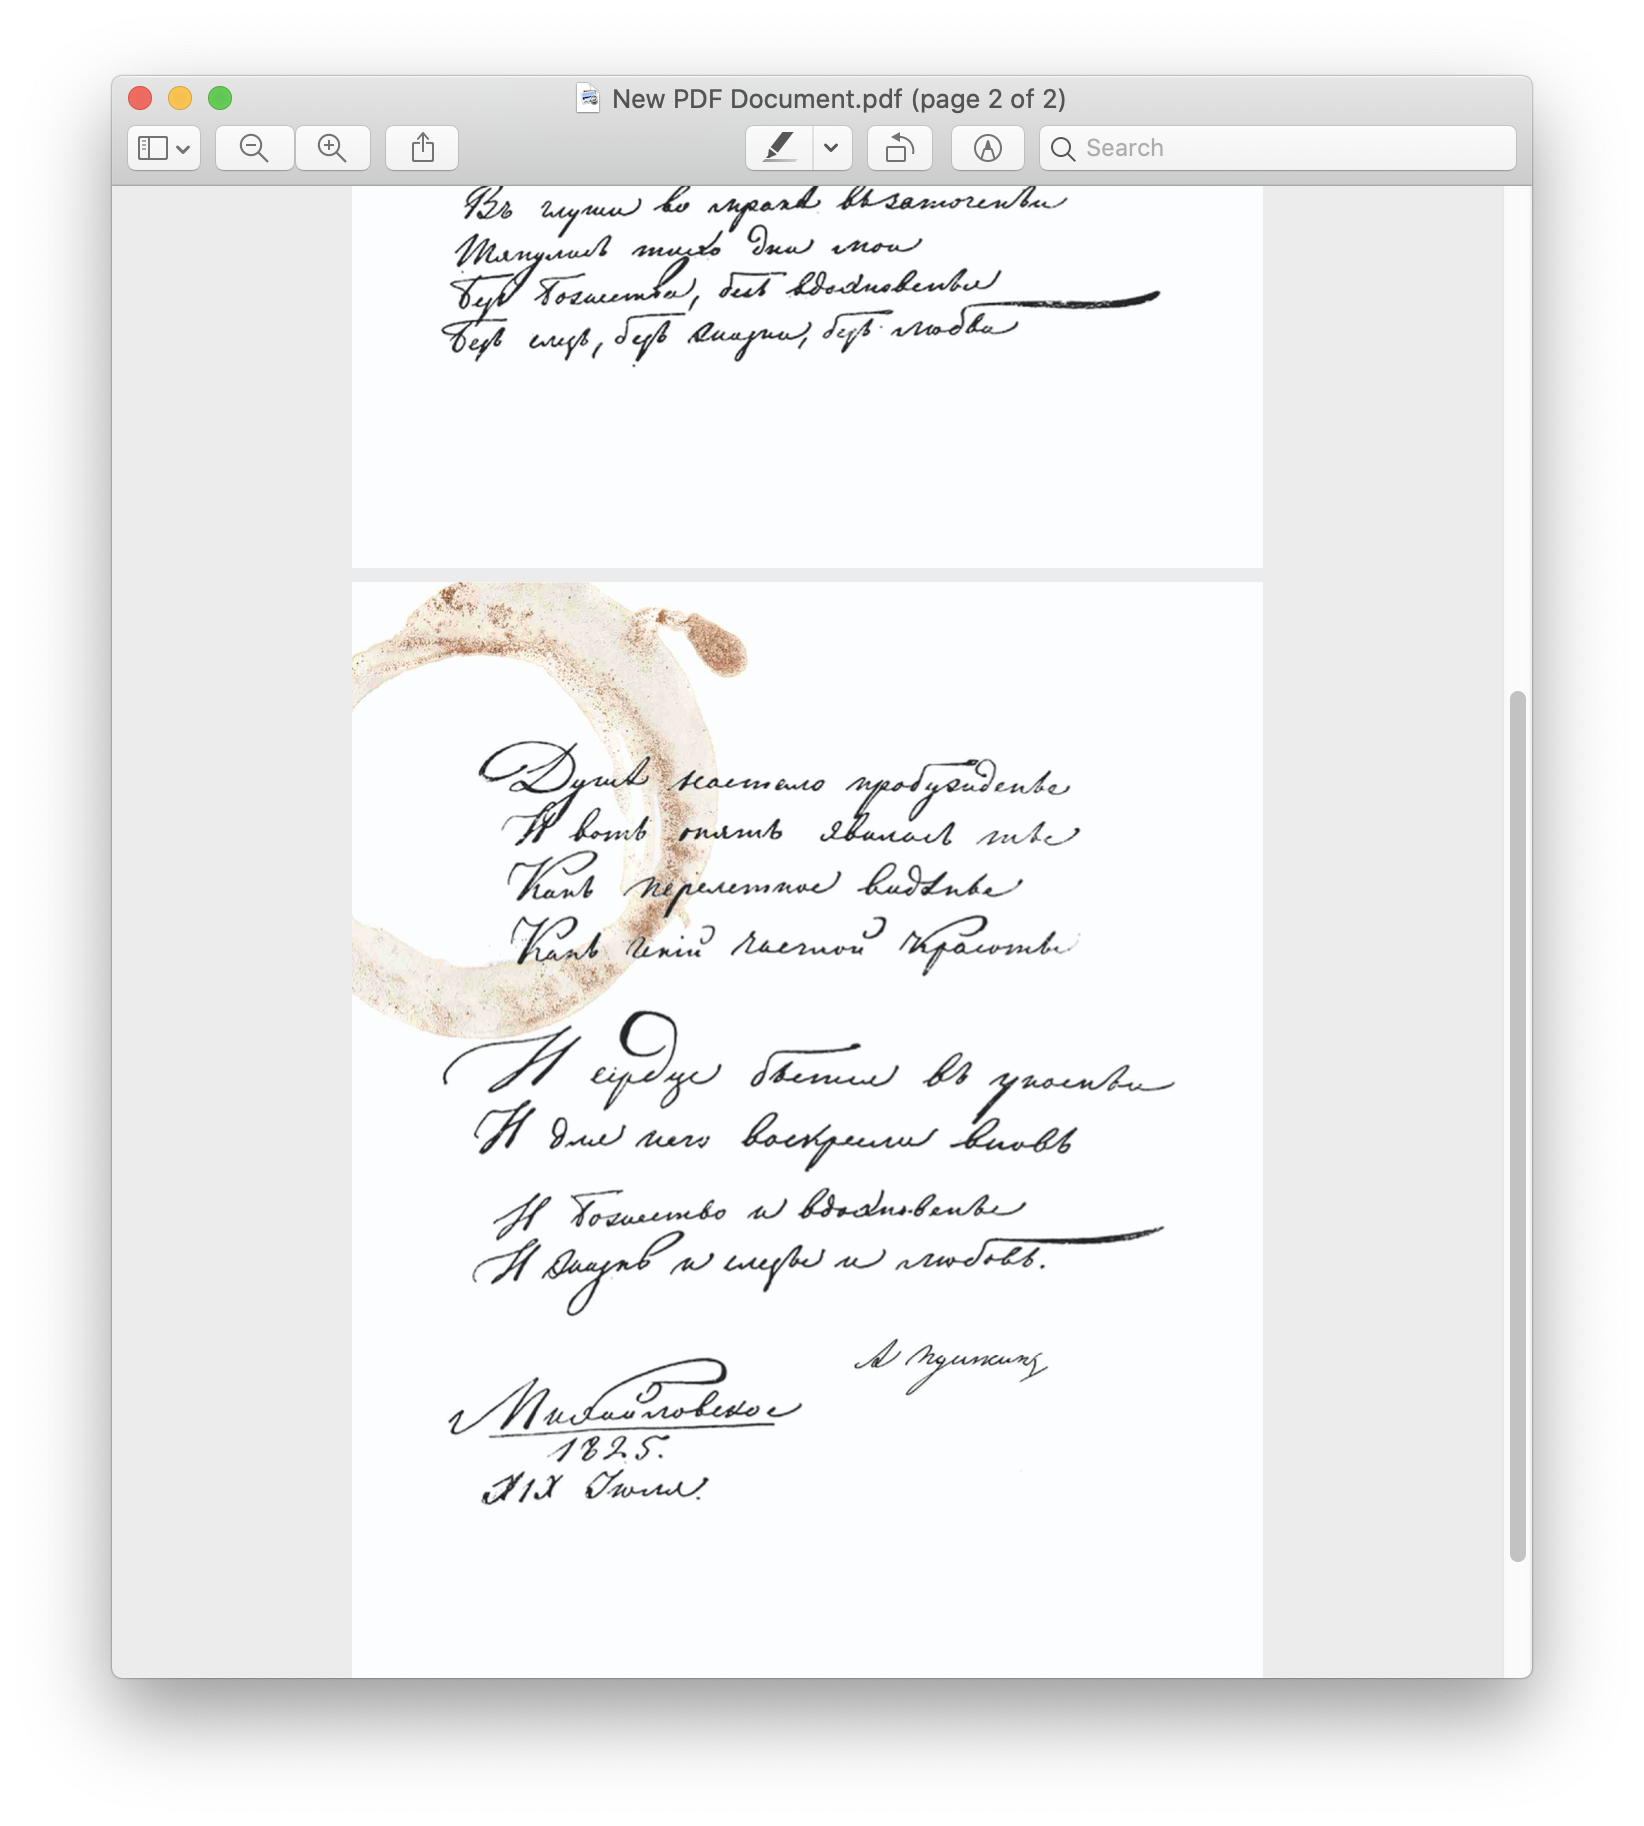 New PDF Document.pdf (page 2 of 2)
Search
Въ глуши во мракѣ въ заточеньи
Тянулись тихо дни мои
Безъ Божества, безъ вдохновенья
Безъ слезъ, безъ жизни, безъ любви
Душѣ настало пробужденье
И вотъ опять явилась ты
Какъ перелетное видѣнье
Какъ геній чистой красоты
И сердце бьется въ упоеньи
И для него воскресли вновь
И Божество и вдохновенье
И жизнь и слезы и любовь.
А Пушкинъ
Михайловское
1825.
XIX Июля.